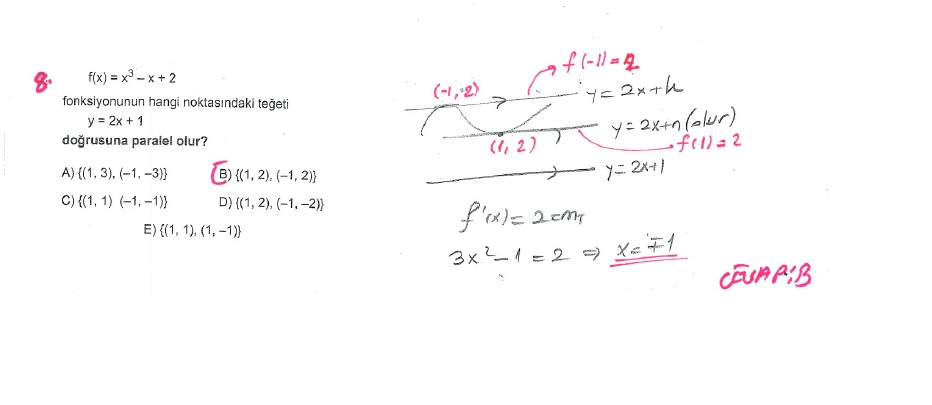 8.
f(x) = x³ – x + 2
fonksiyonunun hangi noktasındaki teğeti
y = 2x + 1
doğrusuna paralel olur?
A) {(1, 3), (–1, –3)}
B) {(1, 2), (–1, 2)}
C) {(1, 1) (–1, –1)}
D) {(1, 2), (–1, –2)}
E) {(1, 1), (1, –1)}
f(-1) = 2
(-1, 2)
y = 2x+k
y = 2x+n (olur)
(1, 2)
f(1) = 2
y = 2x+1
f'(x) = 2 = m
3x² – 1 = 2 ⇒ x = ∓1
CEVAP: B